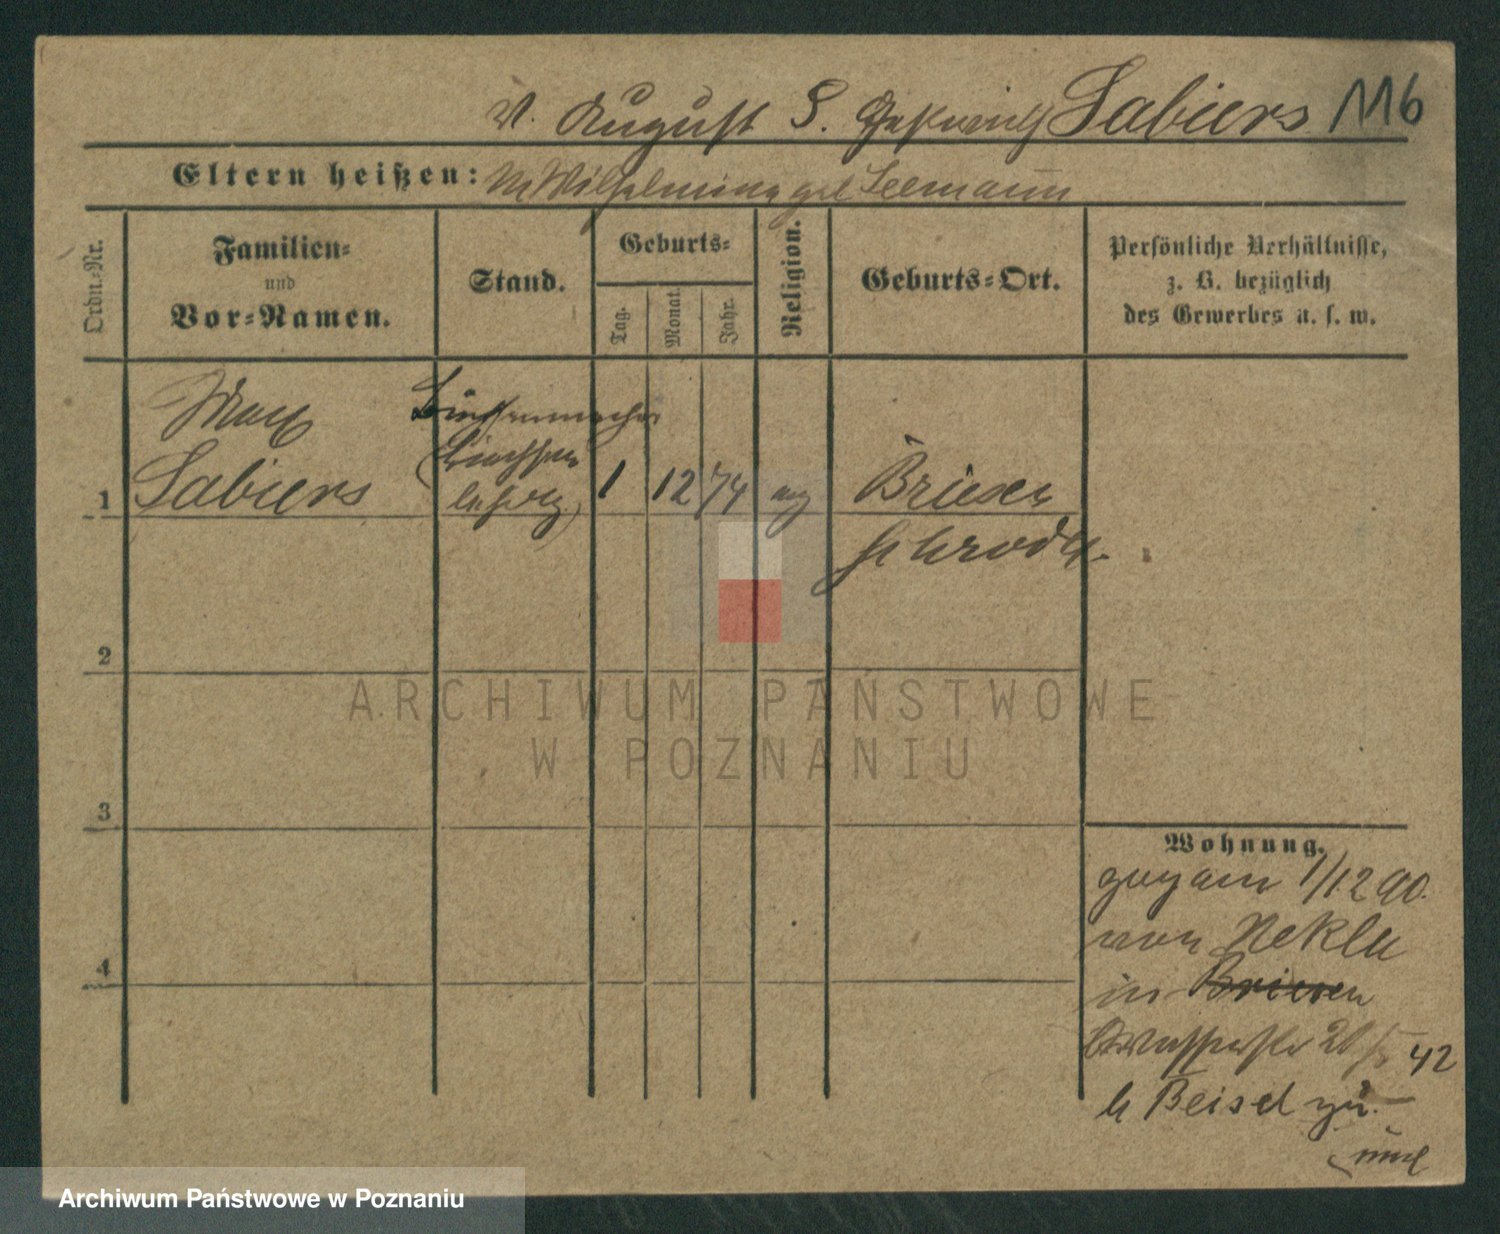 V. August S. Sabiers 116
Eltern heißen: M Wilhelmine geb Seemann
Ordn.-Nr.
Familien-
und
Vor-Namen.
Stand.
Geburts-
Tag.
Monat.
Jahr.
Religion.
Geburts-Ort.
Persönliche Verhältnisse,
z. B. bezüglich
des Gewerbes u. s. w.
Max
Büchsenmacher
1 Sabiers
1 12 74 ev
Briesen
2
ARCHIWUM PAŃSTWOWE
W POZNANIU
3
Wohnung.
zugam 1/12 90.
von Nekla
4
in Briesen
Wasserstr 42
b Beisel zu.
Archiwum Państwowe w Poznaniu